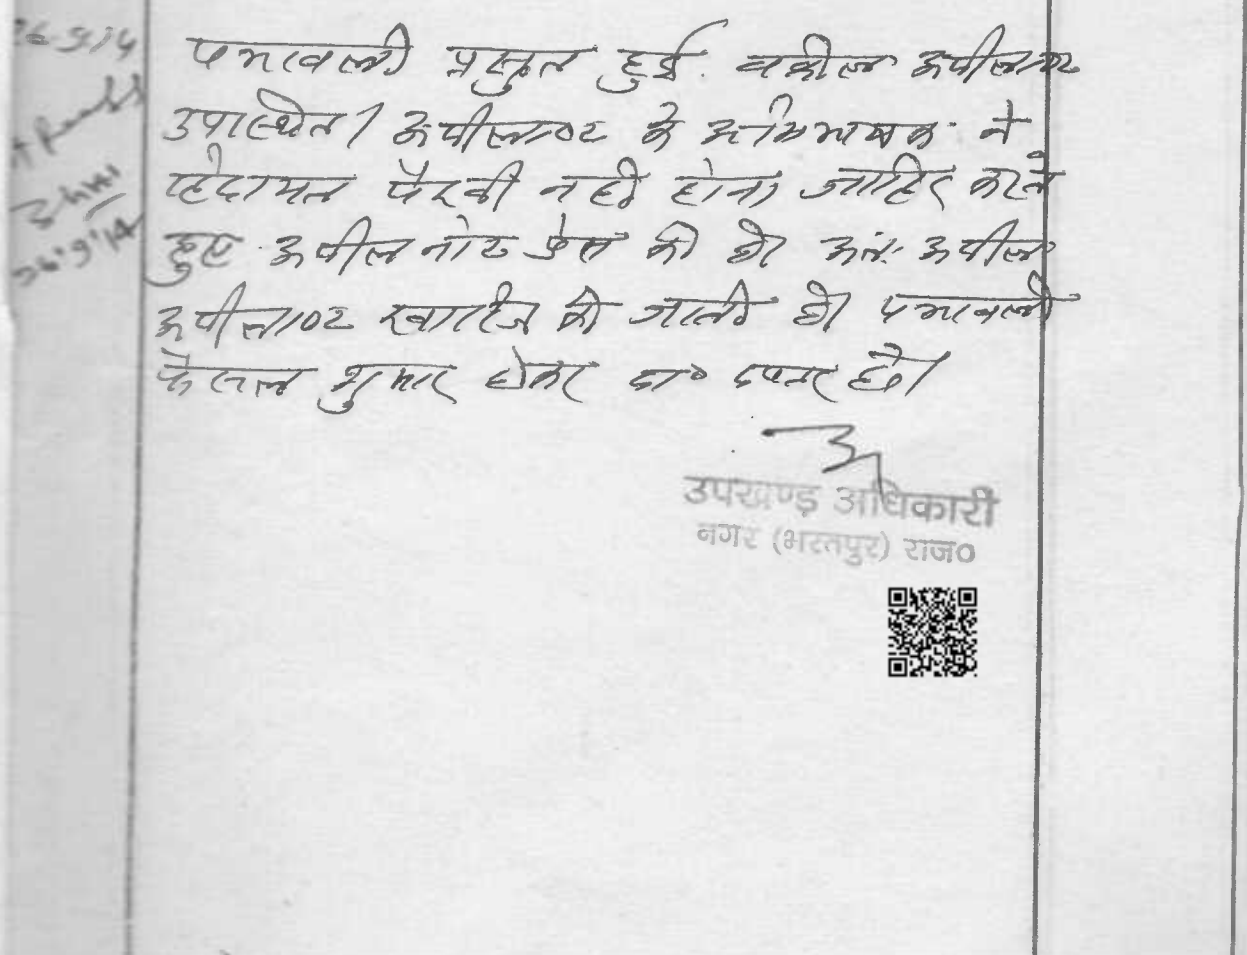 26.9.14
पत्रावली प्रस्तुत हुई. वकील अपीलाण्ट
उपस्थित। अपीलाण्ट के अभिभाषक ने
हिदायत पैरवी नही होना जाहिर करते
हुए अपील नोट प्रेस की है। अतः अपील
अपीलाण्ट खारिज की जाती है। पत्रावली
फैसल शुमार होकर दा० दफ्तर है।
26.9.14
उपखण्ड अधिकारी
नगर (भरतपुर) राज०